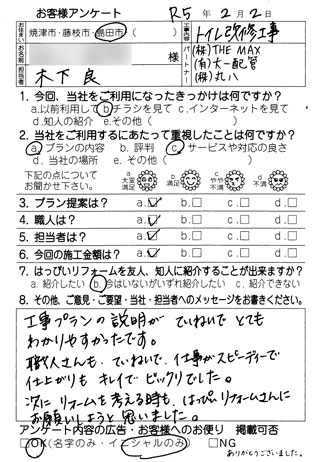 お客様アンケート R5 年 2月 2日
お住まい 焼津市・藤枝市・島田市 工事内容 トイレ改修工事
お名前 様 パートナー (株)THE MAX
(有)大一配管
担当者 木下 良 (株)丸八
1. 今回、当社をご利用になったきっかけは何ですか?
a.以前利用して b.チラシを見て c.インターネットを見て
d.知人の紹介 e.その他( )
2. 当社をご利用するにあたって重視したことは何ですか?
a. プランの内容 b. 評判 c. サービスや対応の良さ
d. 当社の場所 e. その他( )
下記の点について a 大変満足 b 満足 c やや不満 d 不満
お聞かせ下さい。
3. プラン提案は? a.☑ b.□ c.□ d.□
4. 職人は? a.☑ b.□ c.□ d.□
5. 担当者は? a.☑ b.□ c.□ d.□
6. 今回の施工金額は? a.☑ b.□ c.□ d.□
7. はっぴいリフォームを友人、知人に紹介することが出来ますか?
a. 紹介したい b. 今はいないがいずれ紹介したい c. 紹介できない
8. その他、ご意見・ご要望・当社・担当者へのメッセージをお書きください。
工事プランの説明が ていねいで とても
わかりやすかったです。
職人さんも、ていねいで、仕事がスピーディーで
仕上がりも キレイで ビックリでした。
次に リフォームを考える時も、はっぴぃリフォームさんに
お願いしようと思いました。
アンケート内容の広告・お客様へのお便り 掲載可否
□OK(名字のみ・イニシャルのみ) □NG
ありがとうございました。